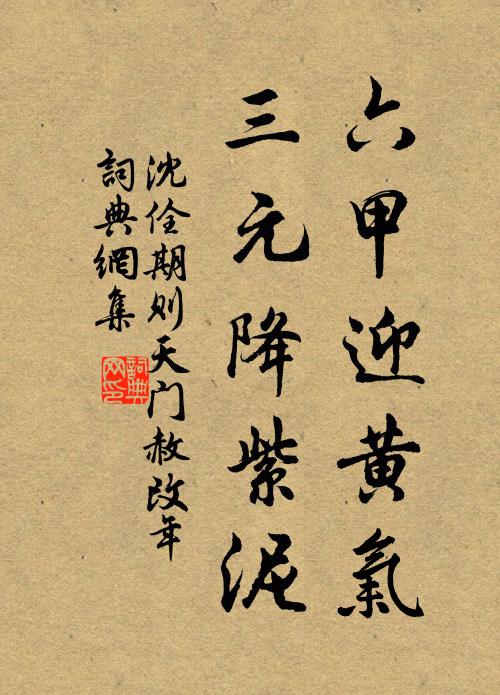 六甲迎黄氣
三元降紫泥
沈佺期则天门赦改年
詞典網集
詞典
网印